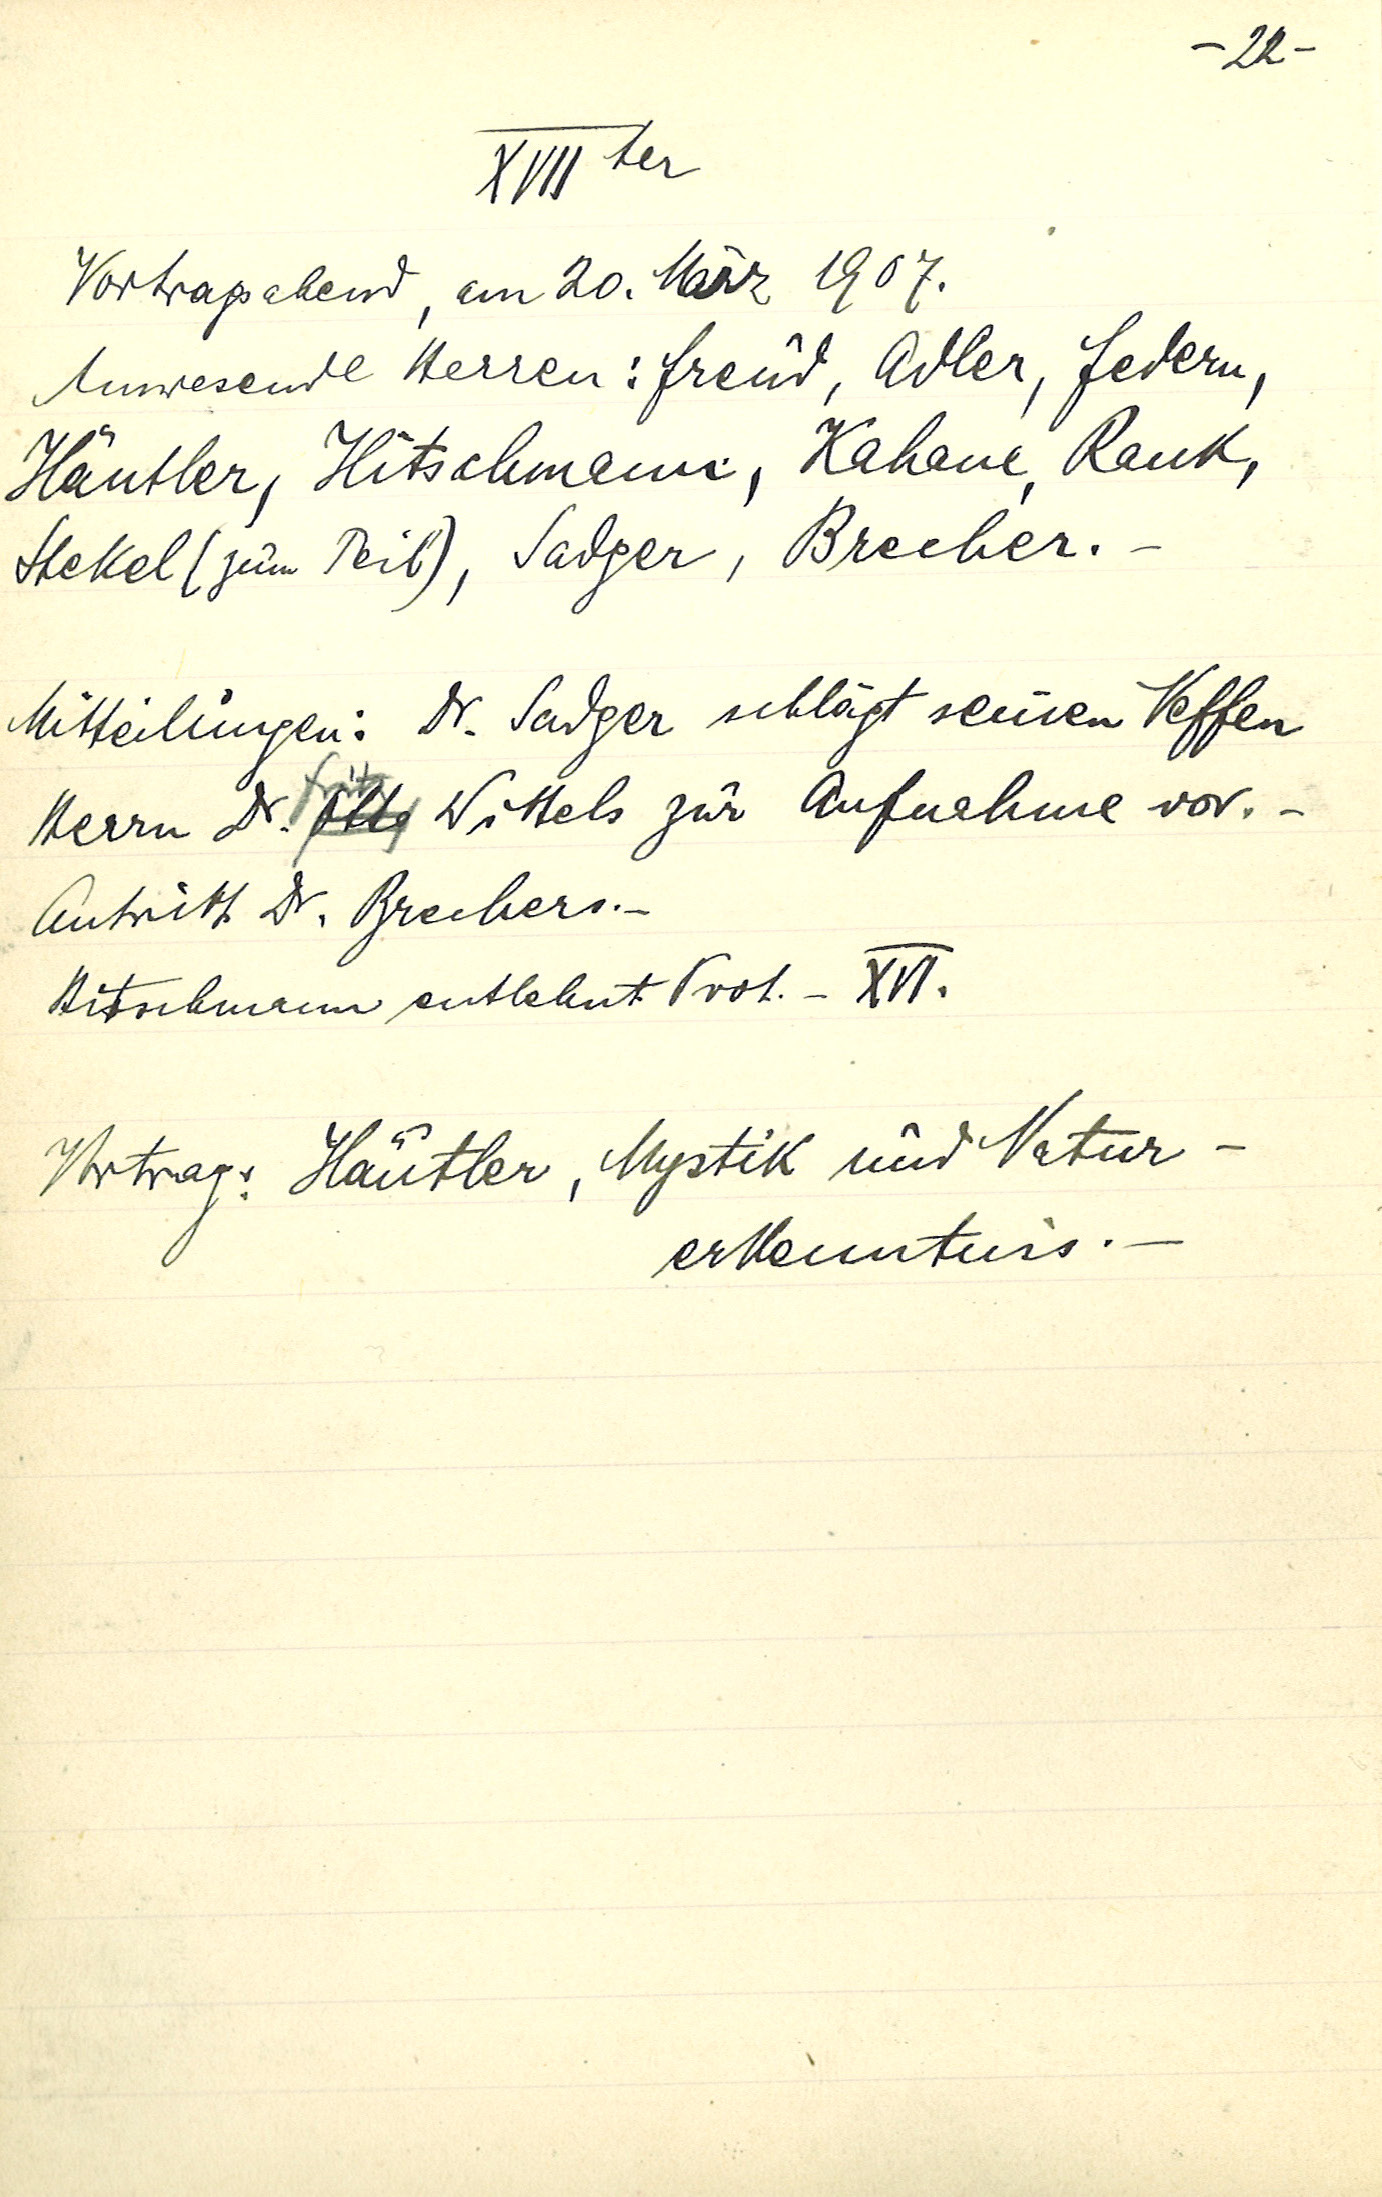 - 22 -
XVII ter
Vortragsabend, am 20. März 1907.
Anwesende Herren: Freud, Adler, Federn,
Häutler, Hitschmann, Kahane, Rank,
Stekel (zum Teil), Sadger, Brecher. -
Mitteilungen: Dr. Sadger schlägt seinen Neffen
Herrn Dr. Otto Fritz Wittels zur Aufnahme vor. -
Antritt Dr. Brechers. -
Hitschmann entlehnt Prot. - XVI.
Vortrag: Häutler, Mystik und Natur-
erkenntnis. -